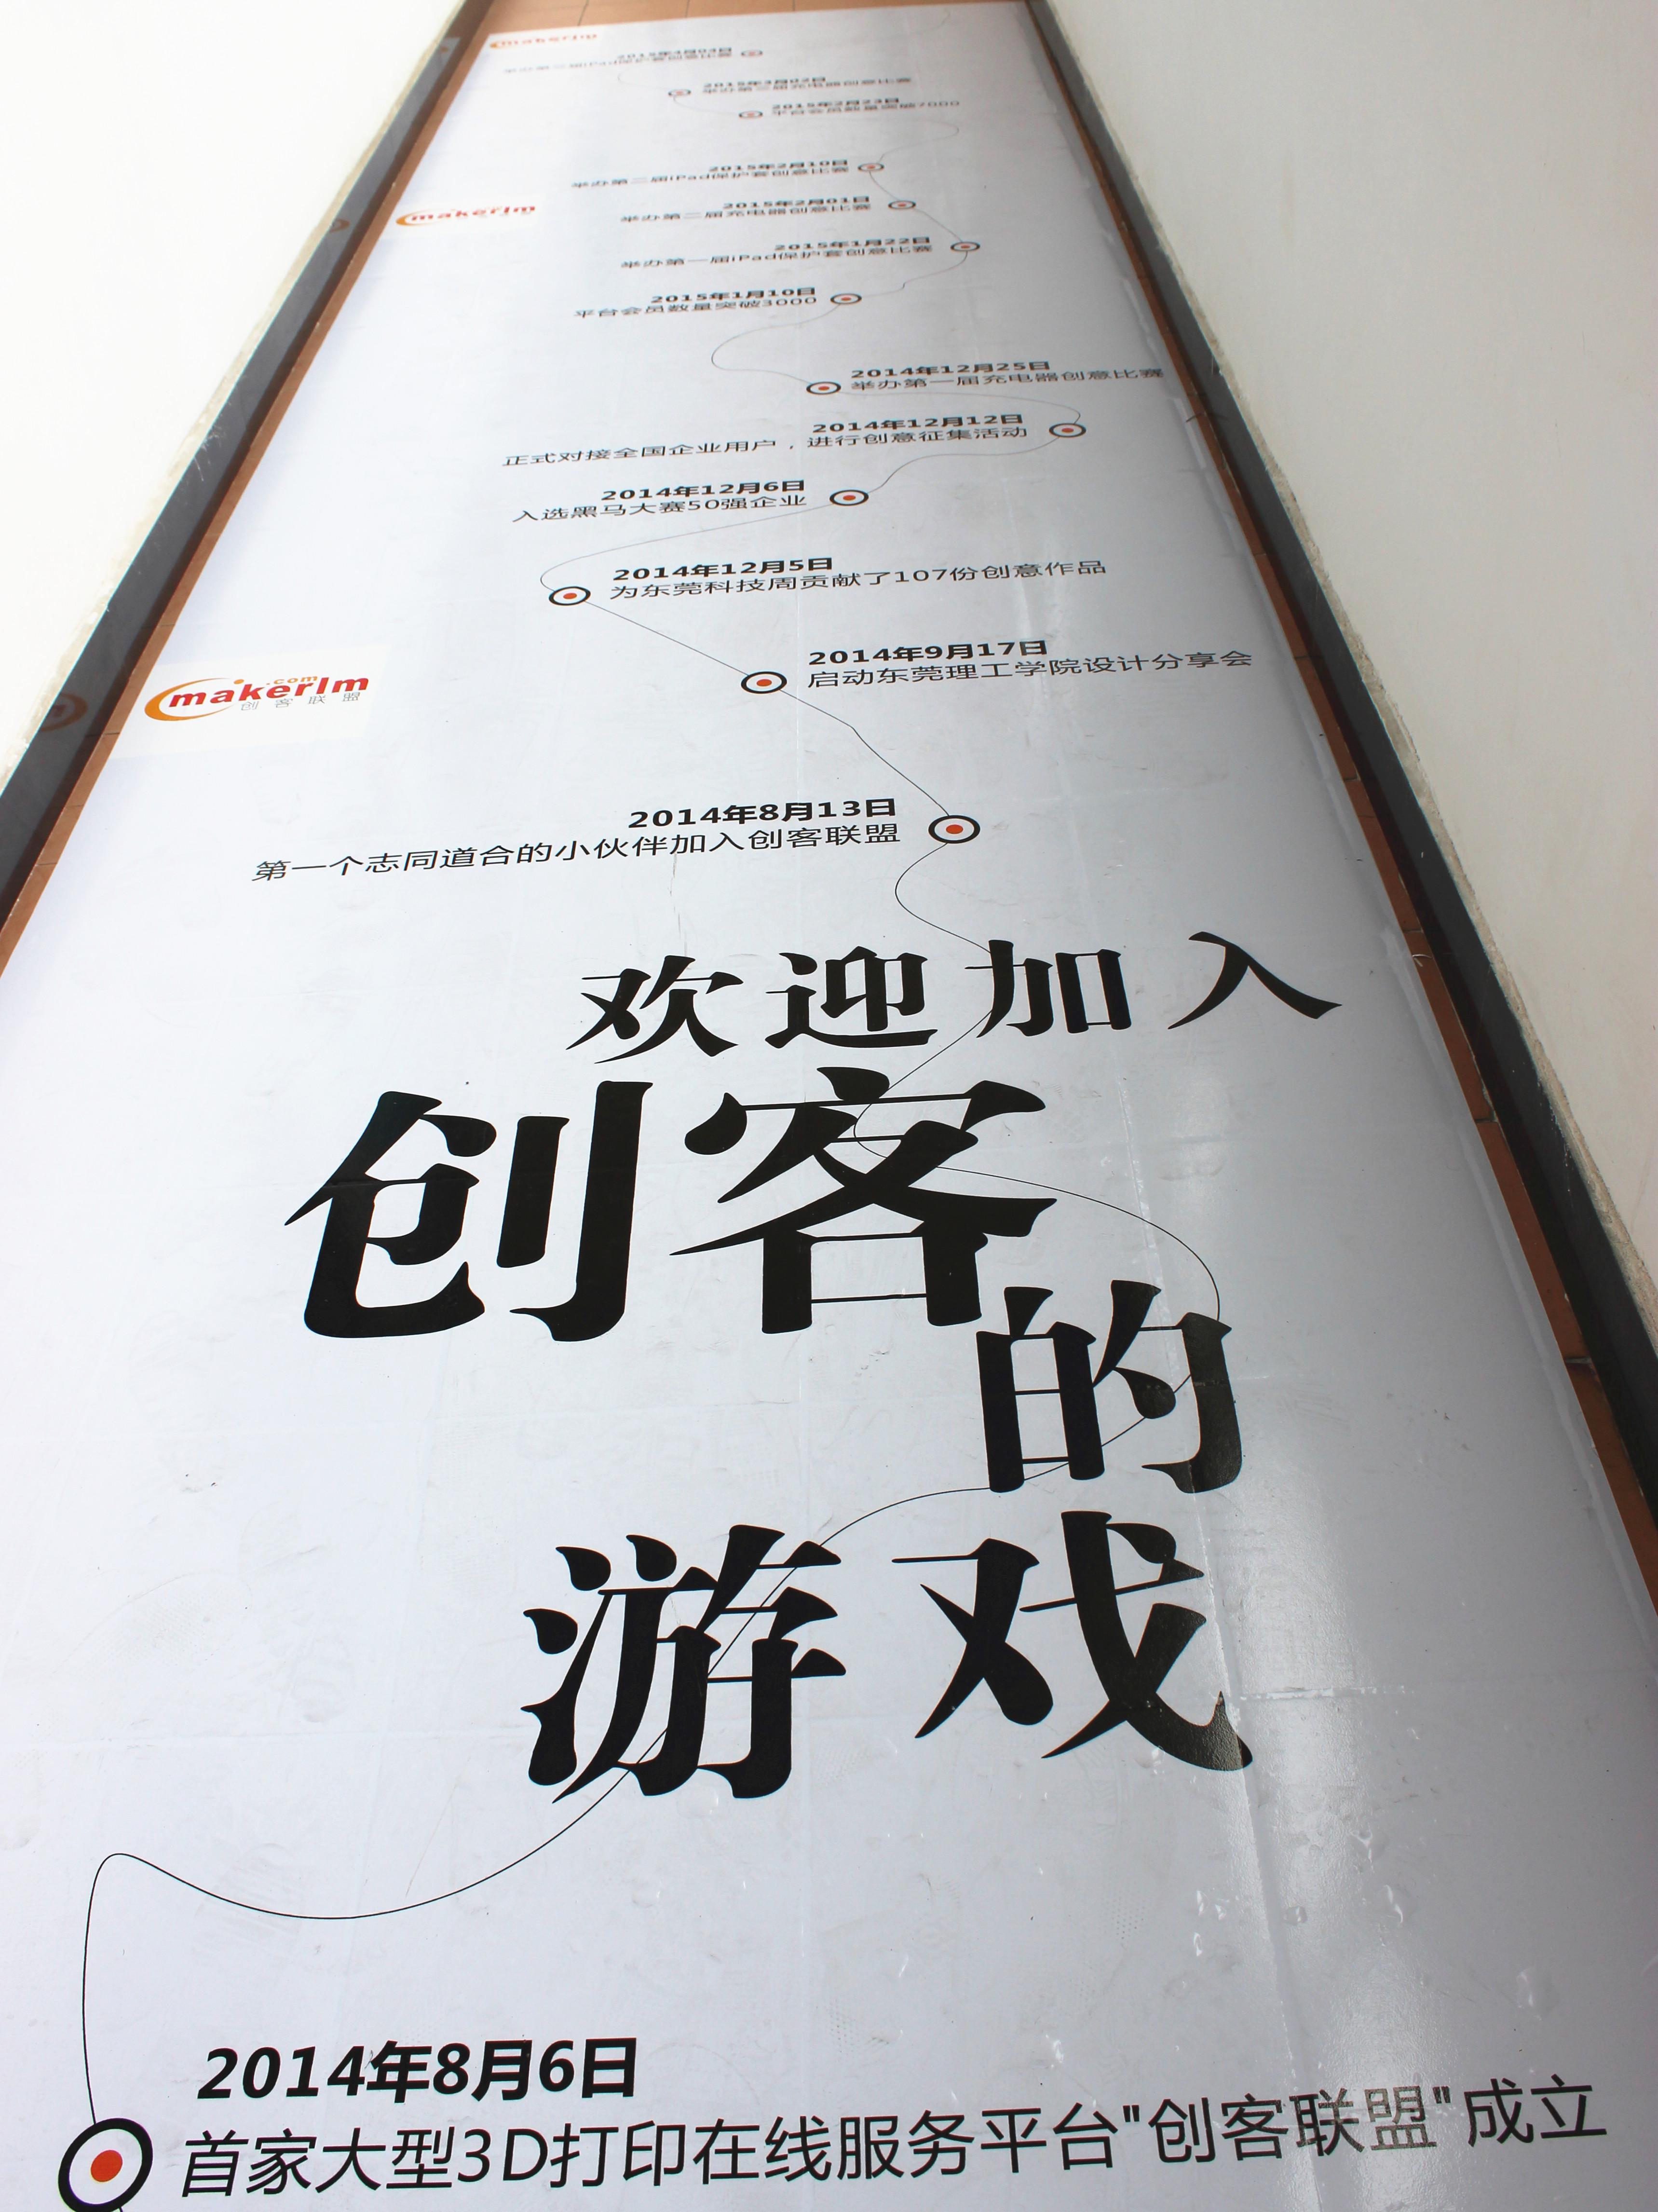 makerlm
2015年4月03日
举办第三届iPad保护套创意比赛
2015年3月02日
举办第三届充电器创意比赛
2015年2月23日
平台会员数量突破7000
2015年2月10日
举办第二届iPad保护套创意比赛
makerlm
2015年2月01日
举办第二届充电器创意比赛
2015年1月22日
举办第一届iPad保护套创意比赛
2015年1月10日
平台会员数量突破3000
2014年12月25日
举办第一届充电器创意比赛
2014年12月12日
正式对接全国企业用户，进行创意征集活动
2014年12月6日
入选黑马大赛50强企业
2014年12月5日
为东莞科技周贡献了107份创意作品
2014年9月17日
启动东莞理工学院设计分享会
makerlm.com
创客联盟
2014年8月13日
第一个志同道合的小伙伴加入创客联盟
欢迎加入
创客
的
游戏
2014年8月6日
首家大型3D打印在线服务平台"创客联盟"成立